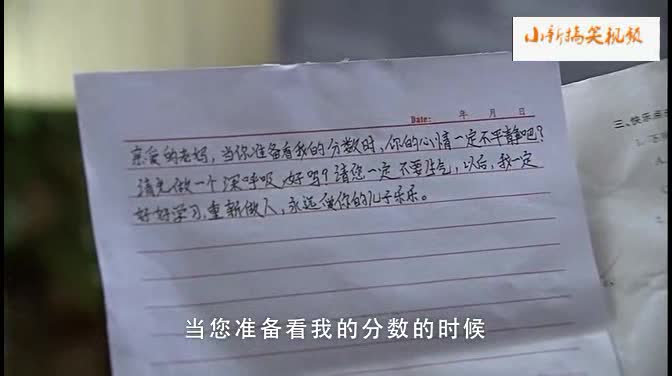 小新搞笑视频
Date: 年 月 日
三、快乐
亲爱的老妈，当你准备看我的分数时，你的心情一定不平静吧？
请先做一个深呼吸，好吗？请您一定不要生气，以后，我一定
好好学习，重新做人，永远做你的儿子乐乐。
当您准备看我的分数的时候